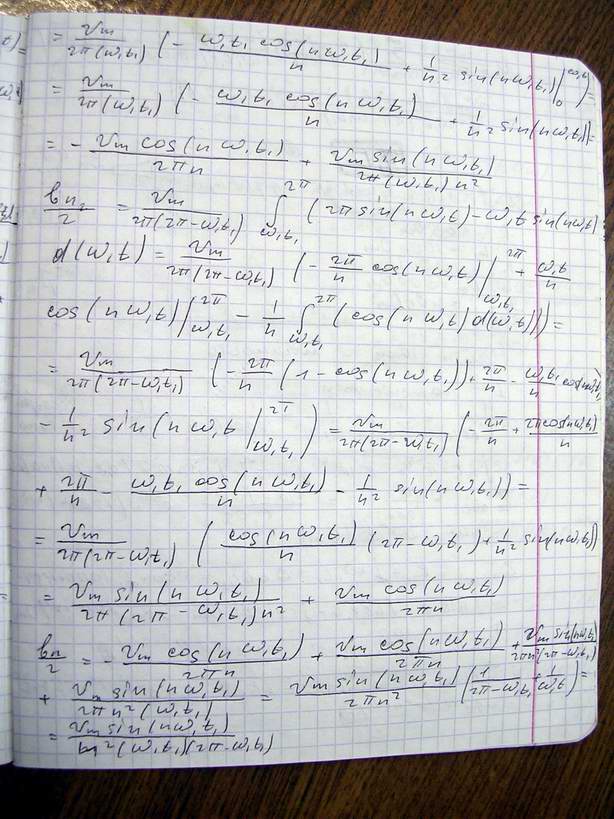 = Vm / 2π(ω₁t₁) ( − ω₁t₁ cos(nω₁t₁) / n + 1/n² sin(nω₁t₁) |₀^ω₁t₁ ) =
= Vm / 2π(ω₁t₁) ( − ω₁t₁ cos(nω₁t₁) / n + 1/n² sin(nω₁t₁) ) =
= − Vm cos(nω₁t₁) / 2πn + Vm sin(nω₁t₁) / 2π(ω₁t₁)n²
bn₂ / 2 = Vm / 2π(2π−ω₁t₁) ∫_ω₁t₁^2π ( 2π sin(nω₁t) − ω₁t sin(nω₁t)
d(ω₁t) = Vm / 2π(2π−ω₁t₁) ( − 2π/n cos(nω₁t) |_ω₁t₁^2π + ω₁t/n
cos(nω₁t) |_ω₁t₁^2π − 1/n ∫_ω₁t₁^2π ( cos(nω₁t) d(ω₁t) ) ) =
= Vm / 2π(2π−ω₁t₁) ( − 2π/n ( 1 − cos(nω₁t₁) ) + 2π/n − ω₁t₁/n cos(nω₁t₁)
− 1/n² sin(nω₁t |_ω₁t₁^2π ) = Vm / 2π(2π−ω₁t₁) ( − 2π/n + 2π cos(nω₁t₁) / n
+ 2π/n − ω₁t₁ cos(nω₁t₁) / n − 1/n² sin(nω₁t₁) ) =
= Vm / 2π(2π−ω₁t₁) ( cos(nω₁t₁) / n (2π−ω₁t₁) + 1/n² sin(nω₁t₁) )
= Vm sin(nω₁t₁) / 2π(2π−ω₁t₁)n² + Vm cos(nω₁t₁) / 2πn
bn / 2 = − Vm cos(nω₁t₁) / 2πn + Vm cos(nω₁t₁) / 2πn + Vm sin(nω₁t₁) / 2πn²(2π−ω₁t₁)
+ Vm sin(nω₁t₁) / 2πn²(ω₁t₁) = Vm sin(nω₁t₁) / 2πn² ( 1 / 2π−ω₁t₁ + 1 / ω₁t ) =
= Vm sin(nω₁t₁) / n²(ω₁t₁)(2π−ω₁t₁)